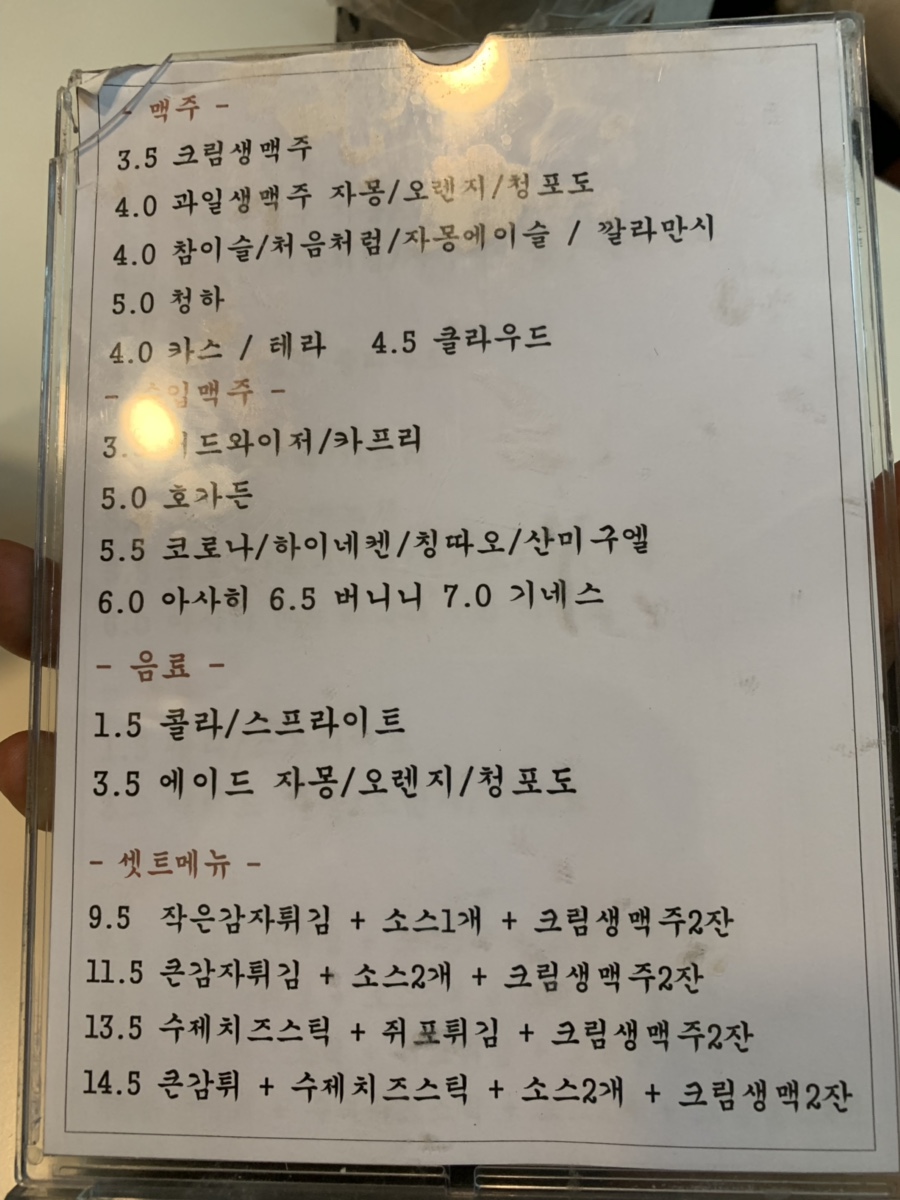 - 맥주 -
3.5 크림생맥주
4.0 과일생맥주 자몽/오렌지/청포도
4.0 참이슬/처음처럼/자몽에이슬 / 깔라만시
5.0 청하
4.0 카스 / 테라 4.5 클라우드
- 수입맥주 -
버드와이저/카프리
5.0 호가든
5.5 코로나/하이네켄/칭따오/산미구엘
6.0 아사히 6.5 버니니 7.0 기네스
- 음료 -
1.5 콜라/스프라이트
3.5 에이드 자몽/오렌지/청포도
- 셋트메뉴 -
9.5 작은감자튀김 + 소스1개 + 크림생맥주2잔
11.5 큰감자튀김 + 소스2개 + 크림생맥주2잔
13.5 수제치즈스틱 + 쥐포튀김 + 크림생맥주2잔
14.5 큰감튀 + 수제치즈스틱 + 소스2개 + 크림생맥2잔